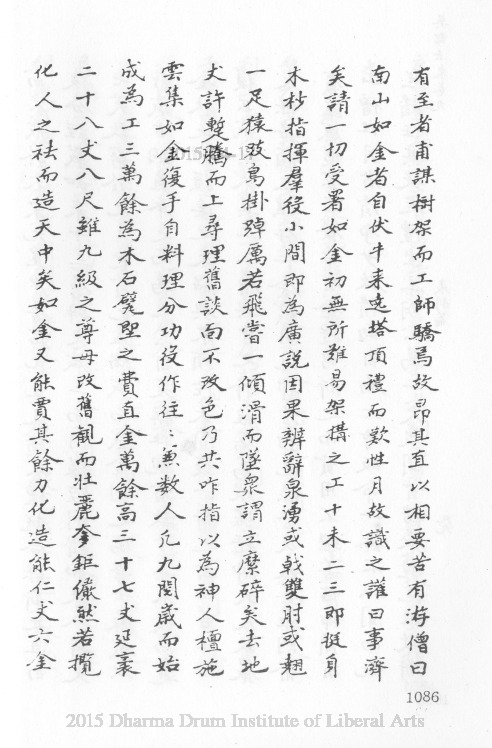 有至者甫謀樹架而工師驕焉故昂其直以相要苦有游僧曰
南山如金者自伏牛來遶塔頂禮而歎性月故識之讙曰事濟
矣請一切受署如金初無所難易架搆之工十未二三即挺身
木杪指揮羣役小間即為廣說因果辨辭泉湧或戟雙肘或翹
一足猿跂鳥掛踔厲若飛嘗一傾滑而墜衆謂立糜碎矣去地
丈許蹔騰而上尋理舊談面不改色乃共咋指以為神人檀施
雲集如金復手自料理分功役作往〻兼數人凡九閱歲而始
成為工三萬餘為木石甓堊之費直金萬餘高三十七丈延袤
二十八丈八尺雖九級之尊毋改舊觀而壯麗奎鉅儼然若攬
化人之袪而造天中矣如金又能賈其餘力化造能仁丈六金
1086
2015 Dharma Drum Institute of Liberal Arts